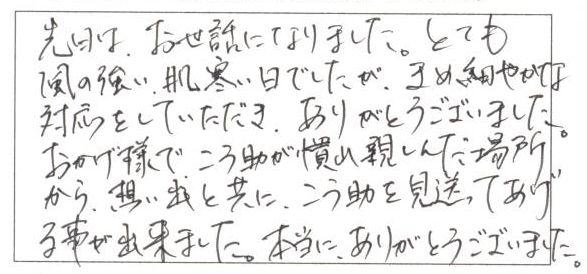 先日は、お世話になりました。とても
風の強い、肌寒い日でしたが、まめ細やかな
対応をしていただき、ありがとうございました。
おかげ様で、こう助が慣れ親しんだ場所
から、想い出と共に、こう助を見送ってあげ
る事が出来ました。本当に、ありがとうございました。